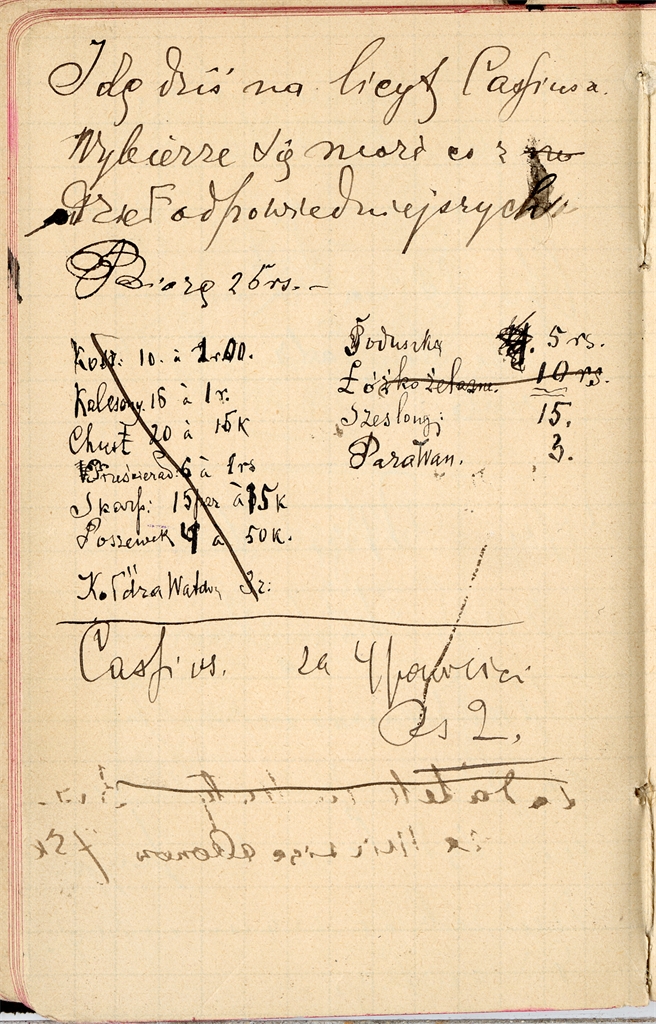 Idę dziś na licyt Cassiusa.
Wybierze się może co z
dzieł odpowiedniejszych
Biorę 25 rs. –
Kosz: 10. à 1r.00.
Kalesony. 16 à 1 r.
Chust 20 à 15K
Prześcierad: 6 à 1rs
Skarp: 15 par à 15K
Poszewek 4 à 50K.
Kołdra Watow 3r:
Poduszka 5 rs.
Łóżko żelazne. 10 rs.
Szeslong: 15.
Parawan. 3.
Cassius. za 4
Rs 2.